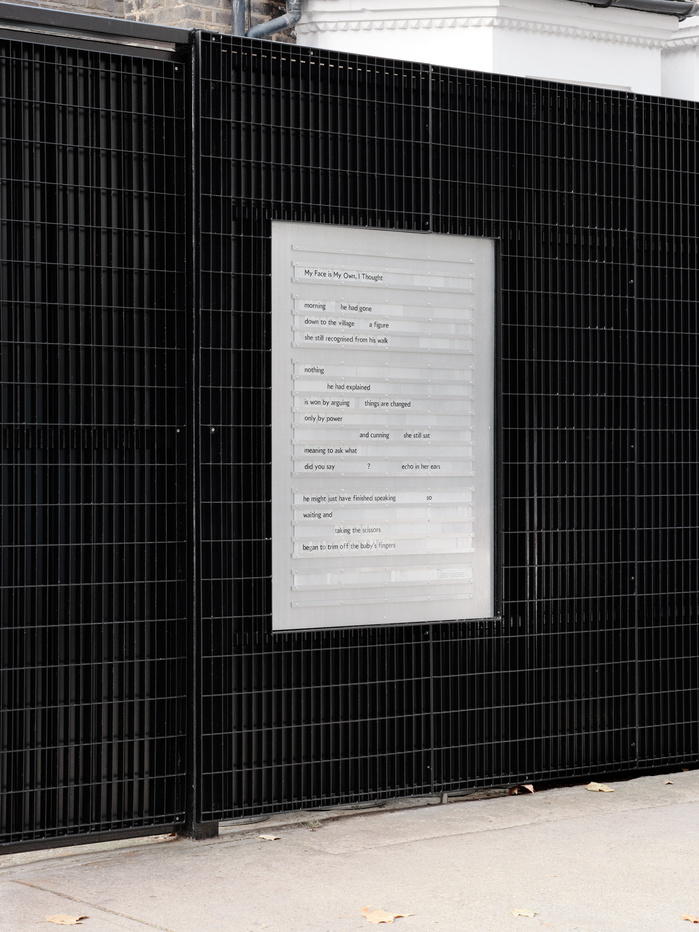 My Face is My Own, I Thought
morning he had gone
down to the village a figure
she still recognised from his walk
nothing
he had explained
is won by arguing things are changed
only by power
and cunning she still sat
meaning to ask what
did you say ? echo in her ears
he might just have finished speaking so
waiting and
taking the scissors
began to trim off the baby's fingers